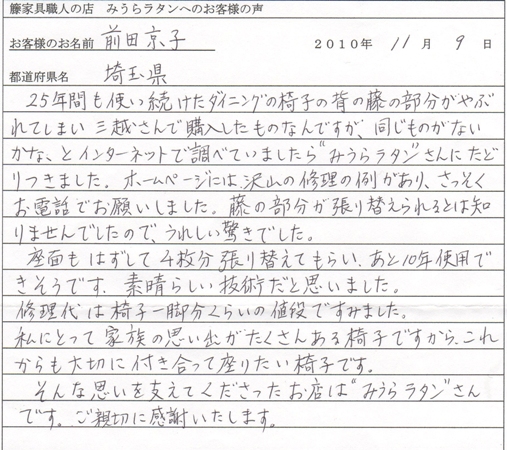 籐家具職人の店 みうらラタンへのお客様の声
お客様のお名前 前田京子 2010年 11月 9日
都道府県名 埼玉県
25年間も使い続けたダイニングの椅子の背の藤の部分がやぶ
れてしまい 三越さんで購入したものなんですが、同じものがない
かな、とインターネットで調べていましたら"みうらラタン"さんにたど
りつきました。ホームページには沢山の修理の例があり、さっそく
お電話でお願いしました。藤の部分が張り替えられるとは知
りませんでしたので、うれしい驚きでした。
座面もはずして4枚分張り替えてもらい、あと10年使用で
きそうです。素晴らしい技術だと思いました。
修理代は椅子一脚分くらいの値段ですみました。
私にとって家族の思い出がたくさんある椅子ですから、これ
からも大切に付き合って座りたい椅子です。
そんな思いを支えてくださったお店は"みうらラタン"さん
です。ご親切に感謝いたします。